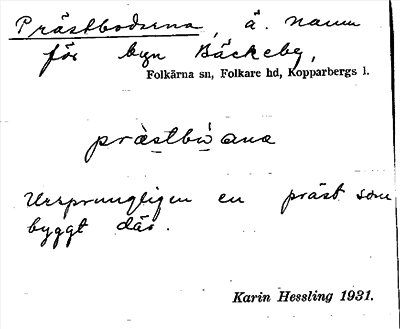 Prästbodarna, ä. namn
för byn Bäckeby,
Folkärna sn, Folkare hd, Kopparbergs l.
præstbùána
Ursprungligen en präst som
byggt där.
Karin Hessling 1931.